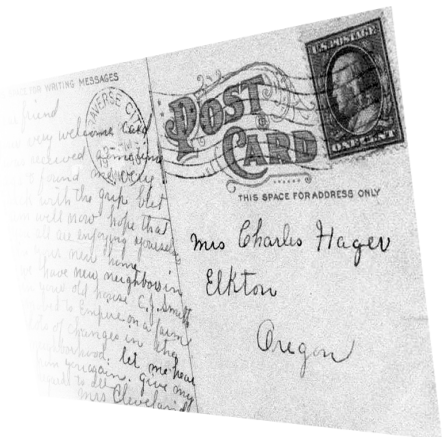 FOR WRITING MESSAGES
friend
very welcome card
received
found me very
with the grip but
will now hope that
all are enjoying yourselves
your new home
have new neighbors in
your old house C.J. Smith
to Empire on a farm
lots of changes in the
neighborhood: let me hear
from you again. give my
to all
Mrs Cleveland
TRAVERSE CITY
POST
CARD
U.S. POSTAGE
ONE CENT
THIS SPACE FOR ADDRESS ONLY
Mrs Charles Hager
Elkton
Oregon